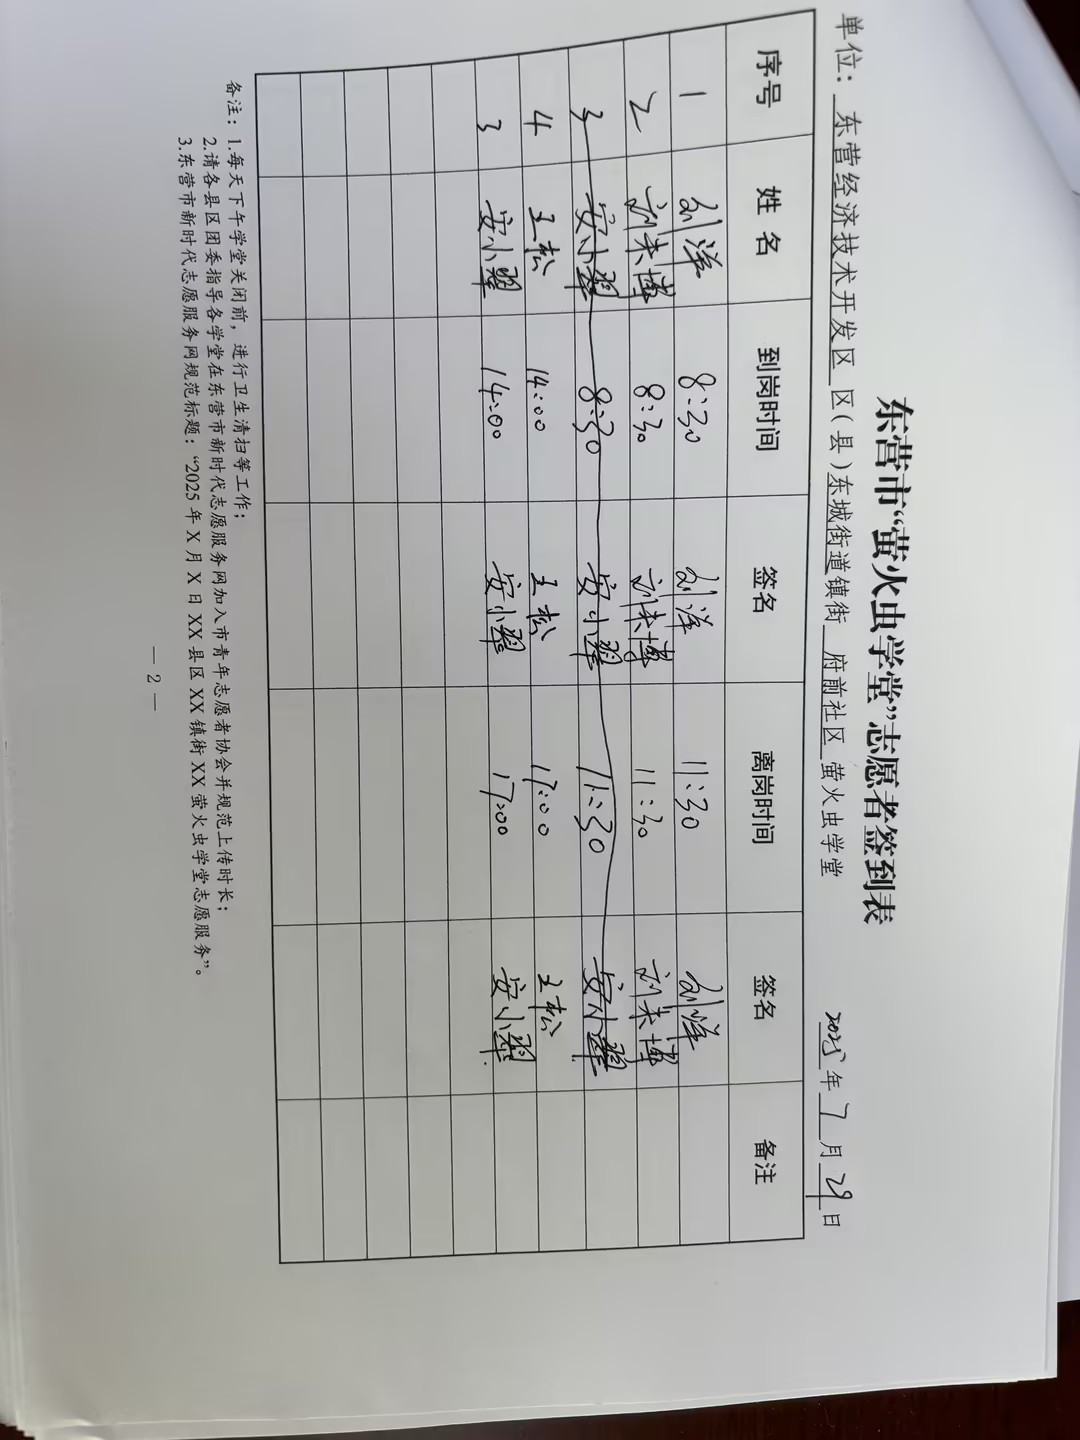 东营市“萤火虫学堂”志愿者签到表
单位：东营经济技术开发区区(县)东城街道镇街 府前社区 萤火虫学堂 2025年7月29日
序号 姓名 到岗时间 签名 离岗时间 签名 备注
1 刘洋 8:30 刘洋 11:30 刘洋
2 刘未博 8:30 刘未博 11:30 刘未博
3 安小翠 8:30 安小翠 11:30 安小翠
4 王松 14:00 王松 17:00 王松
3 安小翠 14:00 安小翠 17:00 安小翠
备注：1.每天下午学堂关闭前，进行卫生清扫等工作；
2.请各县区团委指导各学堂在东营市新时代志愿服务网加入市青年志愿者协会并规范上传时长；
3.东营市新时代志愿服务网规范标题：“2025年X月X日XX县区XX镇街XX萤火虫学堂志愿服务”。
— 2 —